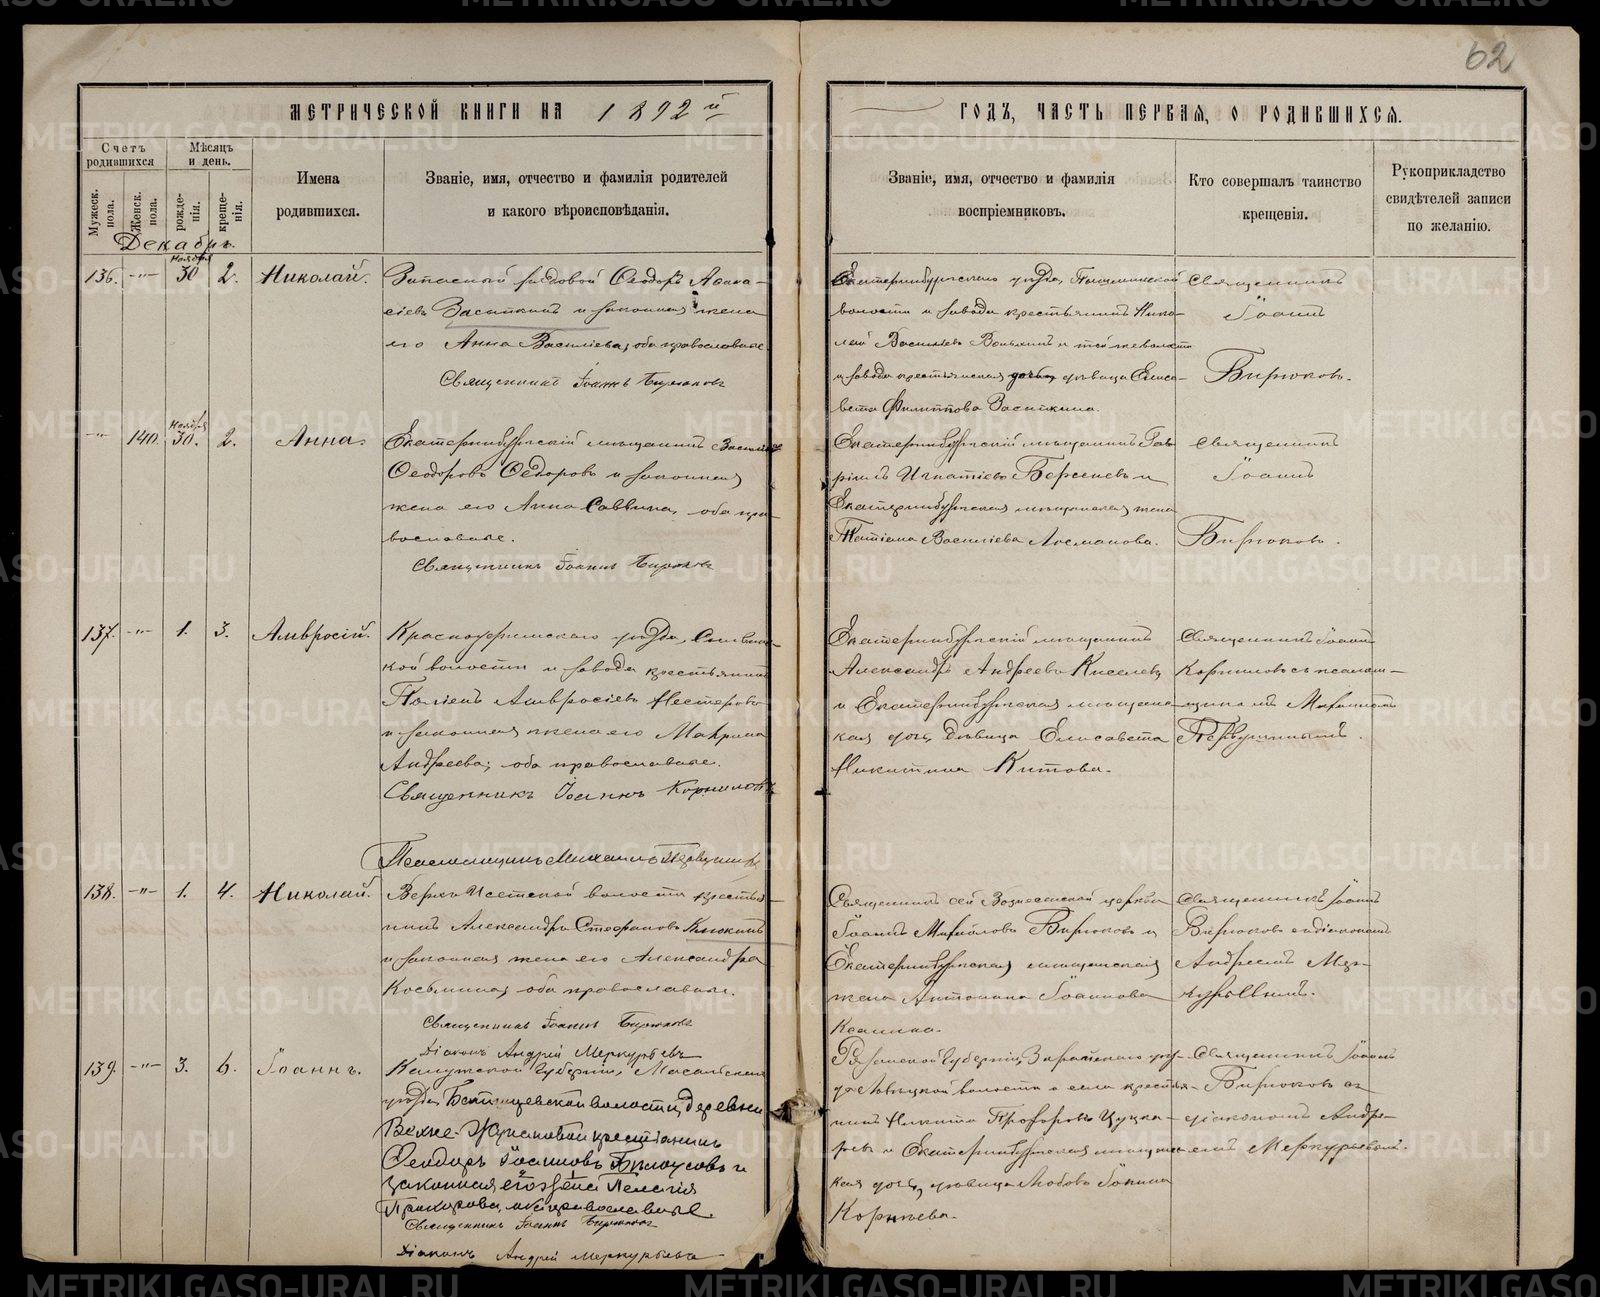 62
МЕТРИЧЕСКОЙ КНИГИ НА 1892й
ГОДЪ, ЧАСТЬ ПЕРВАЯ, О РОДИВШИХСЯ.
Счетъ родившихся
Мѣсяцъ и день.
Мужеск. пола.
Женск. пола.
рожде-нія.
креще-нія.
Имена родившихся.
Званіе, имя, отчество и фамилія родителей
и какого вѣроисповѣданія.
Званіе, имя, отчество и фамилія
воспріемниковъ.
Кто совершалъ таинство
крещенія.
Рукоприкладство
свидѣтелей записи
по желанію.
Декабрь.
136. -"- Ноября 30 2. Николай.
Запасный рядовой Ѳеодоръ Аѳана-
сіевъ Засыпкинъ и законная жена
его Анна Васильева, оба православные.
Священникъ Іоаннъ Бирюковъ
Екатеринбургскаго уѣзда, Пышминской
волости и завода крестьянинъ Нико-
лай Васильевъ и той же волости
и завода крестьянская дочь, дѣвица Елиса-
вета Филиппова Засыпкина.
Священникъ
Іоаннъ
Бирюковъ.
-"- 140. Ноября 30. 2. Анна.
Екатеринбургскій мѣщанинъ Василій
Ѳеодоровъ Ѳедоровъ и законная
жена его Анна Саввина, оба пра-
вославные.
Священникъ Іоаннъ Бирюковъ
Екатеринбургскій мѣщанинъ Гав-
ріилъ Игнатіевъ Берсеневъ и
Екатеринбургская мѣщанская жена
Татіана Василіева
Священникъ
Іоаннъ
Бирюковъ.
137. -"- 1. 3. Амвросій.
Красноуфимскаго уѣзда,
кой волости и завода крестьянинъ
Амвросіевъ Нестеровъ
и законная жена его Макрина
Андреева; оба православные.
Священникъ Іоаннъ Корниловъ
Псаломщикъ Михаилъ Первушинъ
Екатеринбургскій мѣщанинъ
Александръ Андреевъ Киселевъ
и Екатеринбургская мѣщанс-
кая дочь, дѣвица Елисавета
Никитина Китова.
Священникъ Іоаннъ
Корниловъ съ псалом-
щикомъ Михаиломъ
Первушинымъ.
138. -"- 1. 4. Николай.
Верхъ Исетской волости крестья-
нинъ Александръ Стефановъ Клюкинъ
и законная жена его Александра
Косьмина, оба православные.
Священникъ Іоаннъ Бирюковъ
Діаконъ Андрей Меркурьевъ
Священникъ сей Вознесенской церкви
Іоаннъ Михайловъ Бирюковъ и
Екатеринбургская мѣщанская
жена Антонина Іоаннова
Священникъ Іоаннъ
Бирюковъ съ діакономъ
Андреемъ Мер-
курьевымъ.
139. -"- 3. 6. Іоаннъ.
Калужской губерніи, Мосальскаго
уѣзда, волости, деревни
крестьянинъ
Ѳеодоръ Іоанновъ Билоусовъ и
законная его жена Пелагія
Прохорова, оба православные.
Священникъ Іоаннъ Бирюковъ
Діаконъ Андрей Меркурьевъ
Рязанской губерніи, Зарайскаго уѣз-
да волости и села крестья-
нинъ Никита Прохоровъ Цука-
ревъ и Екатеринбургская мѣщанс-
кая дочь, дѣвица Любовь Іонина
Корнѣева.
Священникъ Іоаннъ
Бирюковъ съ
діакономъ Андре-
емъ Меркурьевымъ.
METRIKI.GASO-URAL.RU